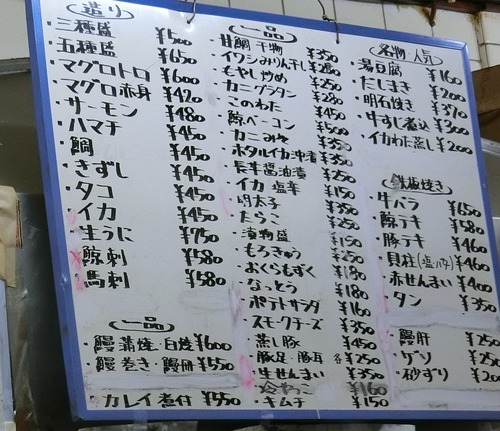 造り
・三種盛 ¥500
・五種盛 ¥650
・マグロトロ ¥600
・マグロ赤身 ¥420
・サーモン ¥480
・ハマチ ¥450
・鯛 ¥450
・きずし ¥450
・タコ ¥450
・イカ ¥450
・生うに ¥750
・鯨刺 ¥580
・馬刺 ¥580
一品
・鰻蒲焼・白焼 ¥600
・鰻巻き・鰻ザク ¥550
・カレイ煮付 ¥550
一品
・甘鯛干物 ¥350
・イワシみりん干し ¥280
・もやし炒め ¥250
・カニグラタン ¥280
・このわた ¥450
・鯨ベーコン ¥500
・カニみそ ¥350
・ホタルイカ沖漬 ¥350
・長芋醤油漬 ¥250
・イカ塩辛 ¥150
・明太子 ¥350
・たらこ ¥250
・漬物盛 ¥150
・もろきゅう ¥250
・おくらもずく ¥180
・なっとう ¥180
・ポテトサラダ ¥160
・スモークチーズ ¥350
・蒸し豚 ¥450
・豚足・豚耳 各¥250
・生せんまい ¥350
・冷やっこ ¥160
・キムチ ¥150
名物・人気
・湯豆腐 ¥160
・だしまき ¥200
・明石焼き ¥370
・牛すじ煮込 ¥300
・イカわた蒸し ¥200
鉄板焼き
・牛バラ ¥650
・鯨テキ ¥580
・豚テキ ¥460
・貝柱(塩・バタ) ¥460
・赤せんまい ¥400
・タン ¥350
・鰻肝 ¥250
・ズリ ¥250
・砂ずり ¥200